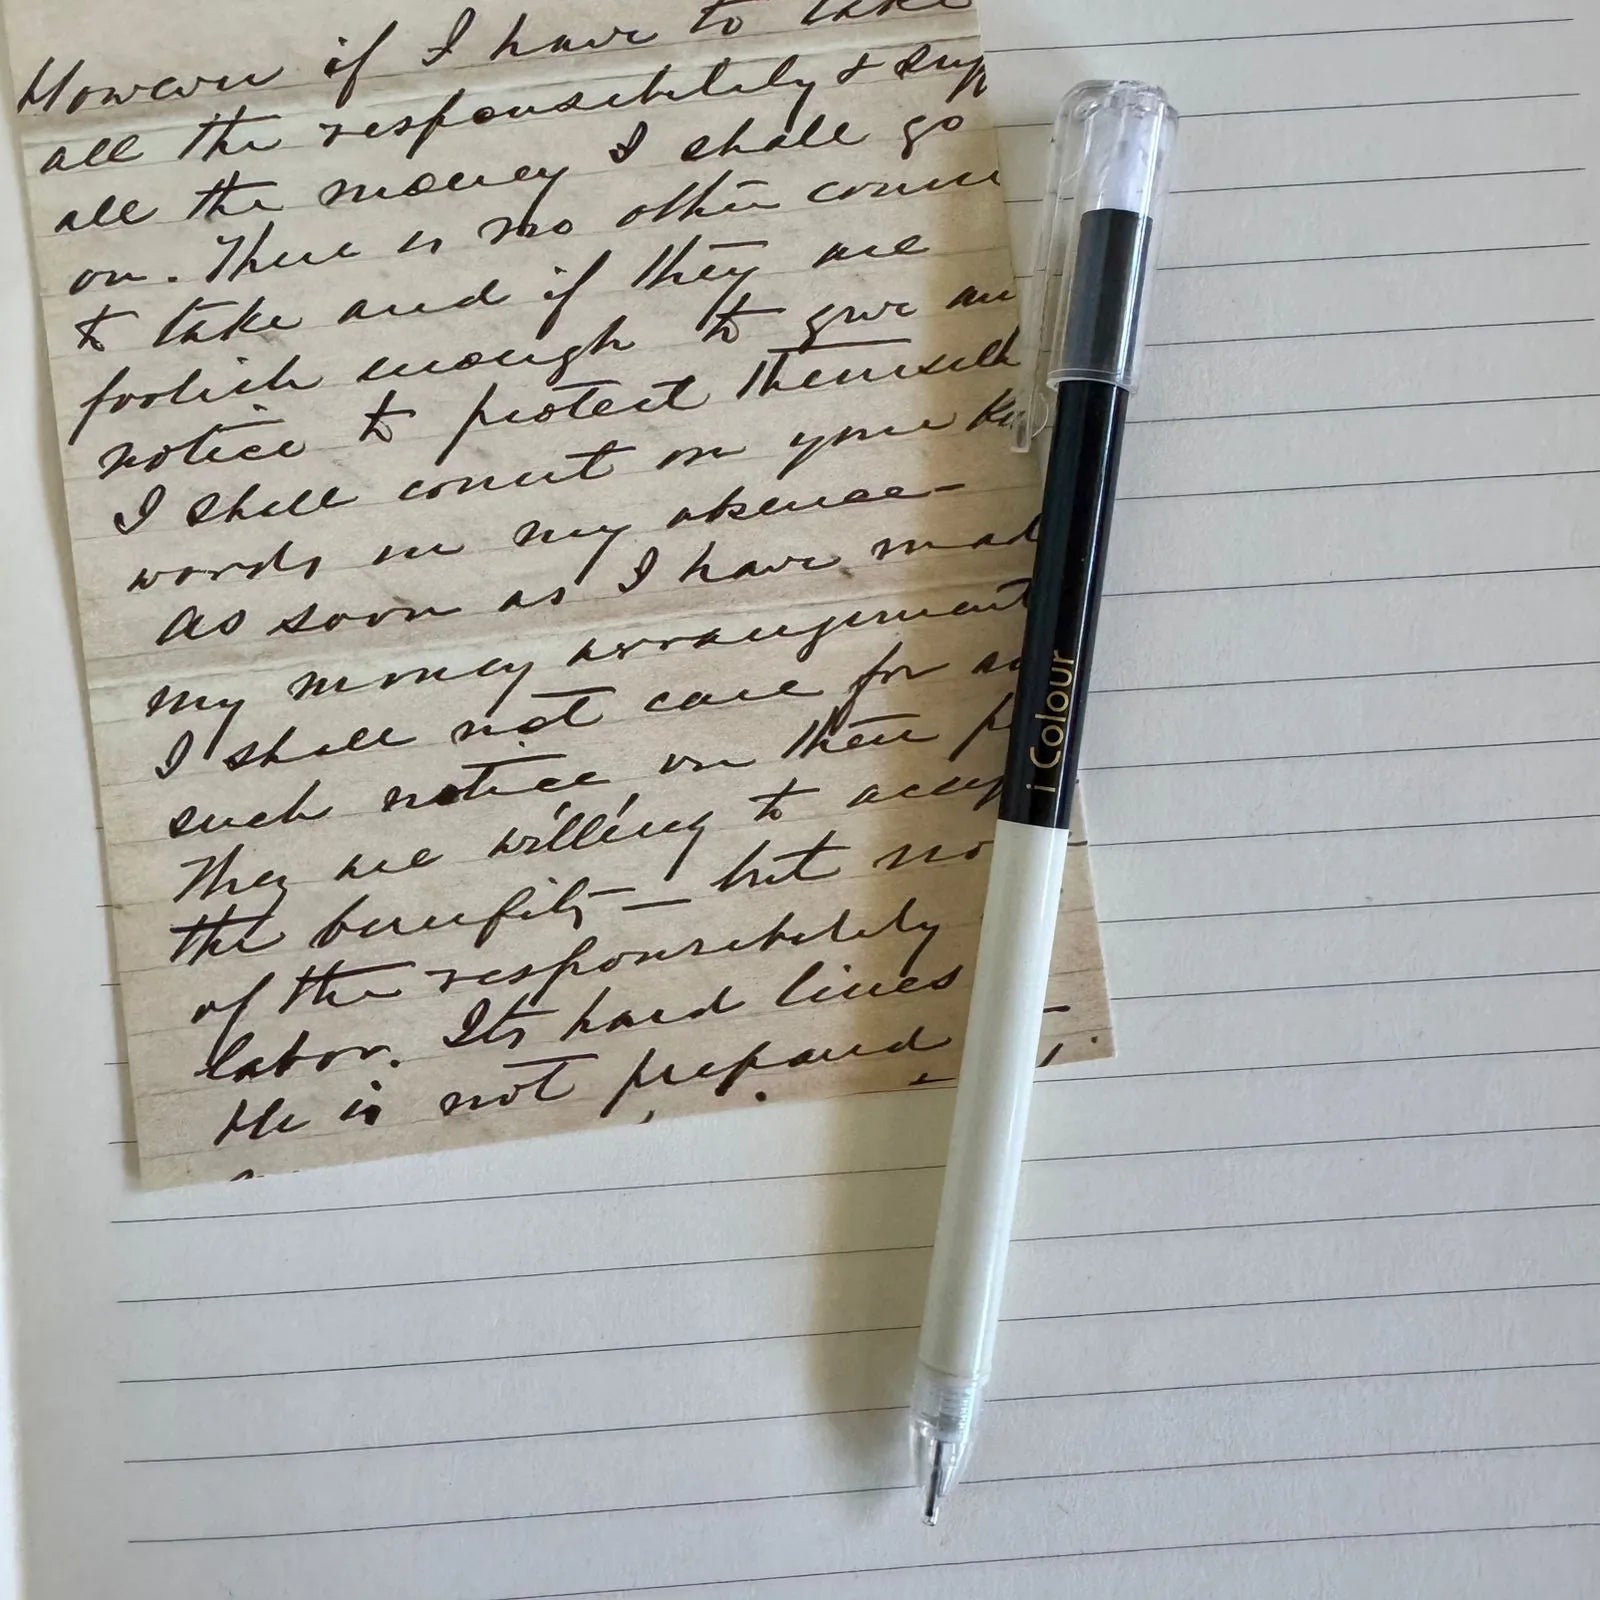 However if I have to take
all the responsibility & sup
all the money I shall go
on. There is no other cours
to take and if they are
foolish enough to give an
notice to protect themselv
I shall count on your ki
words in my absence—
As soon as I have mad
my money arrangement
I shall not care for an
such notice on their p
They are willing to accep
the benefits — but no
of the responsibility
labor. Its hard lines
He is not prepared
i Colour